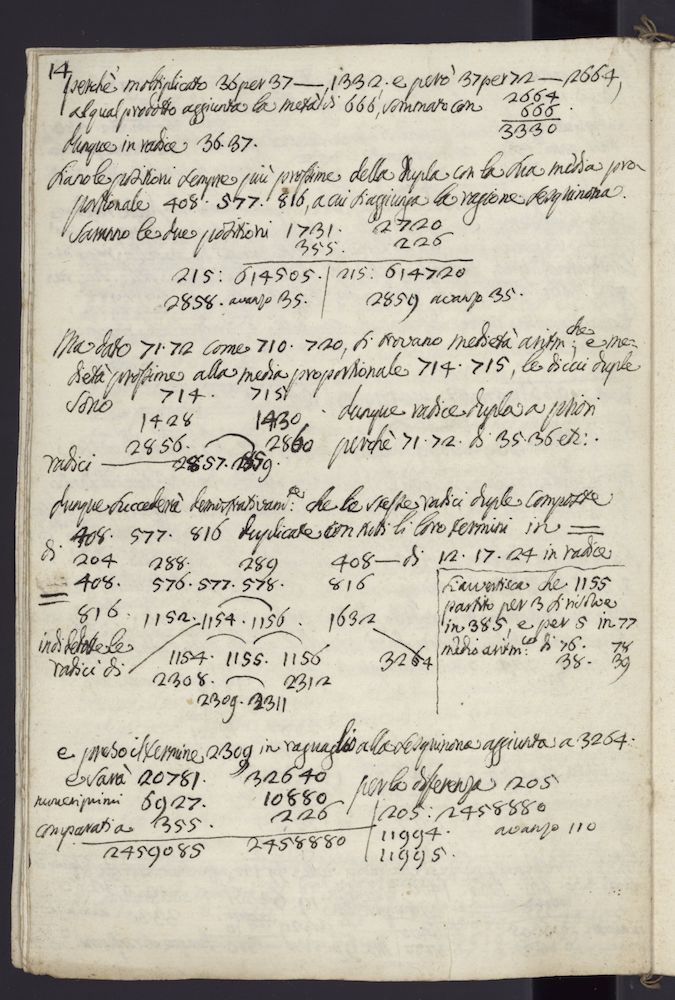 14
perchè moltiplicato 36 per 37 — 1332. e però 37 per 72 — 2664,
al qual prodotto aggiunta la metà di 666, sommato con 2664
666.
3330
dunque in radice 36.37.
Siano le positioni sempre più prossime della dupla con la sua media pro-
portionale 408. 577. 816, a cui s'aggiunga la ragione sesquinona.
Saranno le due positioni 1731. 2720
355. 226
215: 614505. | 215: 614720
2858. avanzo 35. 2859 avanzo 35.
Ma dato 71.72 come 710. 720, si trovano medietà aritm:che e me-
dietà prossime alla media proportionale 714. 715, le di cui duple
sono 714. 715
1428 1430. dunque radice dupla a priori
2856. 2860 perchè 71.72. di 35.36 etc:.
radici — 2857. 2859.
dunque succederà demostrativam:te che le stesse radici duple composte
di 408. 577. 816 duplicate con tutti li loro termini in =
204 288. 289 408 — di 12. 17. 24 in radice
= 408. 576. 577. 578. 816 | s'avvertisca che 1155
816. 1152. 1154. 1156. 1632 partito per 3 si risolve
in 385, e per 5 in 77
indi dette le 1154. 1155. 1156 3264 medio aritm:co di 76. 78
radici di 2308. 2312 38. 39
2309. 2311
e preso il termine 2309 in ragguaglio alla sesquinona aggiunta a 3264.
e sarà 20781. 32640 per la differenza 205
numeri primi 6927. 10880 | 205: 2458880
comparatia 355. 226 11994. avanzo 110
2459085 2458880 11995.